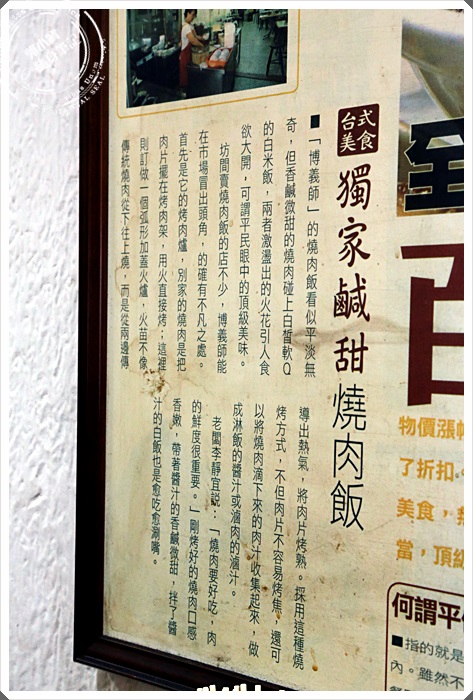 台式
美食
獨家鹹甜燒肉飯
■「博義師」的燒肉飯看似平淡無
奇，但香鹹微甜的燒肉碰上白皙軟Q
的白米飯，兩者激盪出的火花引人食
欲大開，可謂平民眼中的頂級美味。
坊間賣燒肉飯的店不少，博義師能
在市場冒出頭角，的確有不凡之處。
首先是它的烤肉爐，別家的燒肉是把
肉片擺在烤肉架，用火直接烤；這裡
則訂做一個弧形加蓋火爐，火苗不像
傳統燒肉從下往上燒，而是從兩邊傳
導出熱氣，將肉片烤熟。採用這種燒
烤方式，不但肉片不容易烤焦，還可
以將燒肉滴下來的肉汁收集起來，做
成淋飯的醬汁或滷肉的滷汁。
老闆李靜宜說：「燒肉要好吃，肉
的鮮度很重要。」剛烤好的燒肉口感
香嫩，帶著醬汁的香鹹微甜，拌了醬
汁的白飯也是愈吃愈涮嘴。
物價漲
了折扣。
美食，
當，頂級
何謂平
■指的就是
內。雖然不